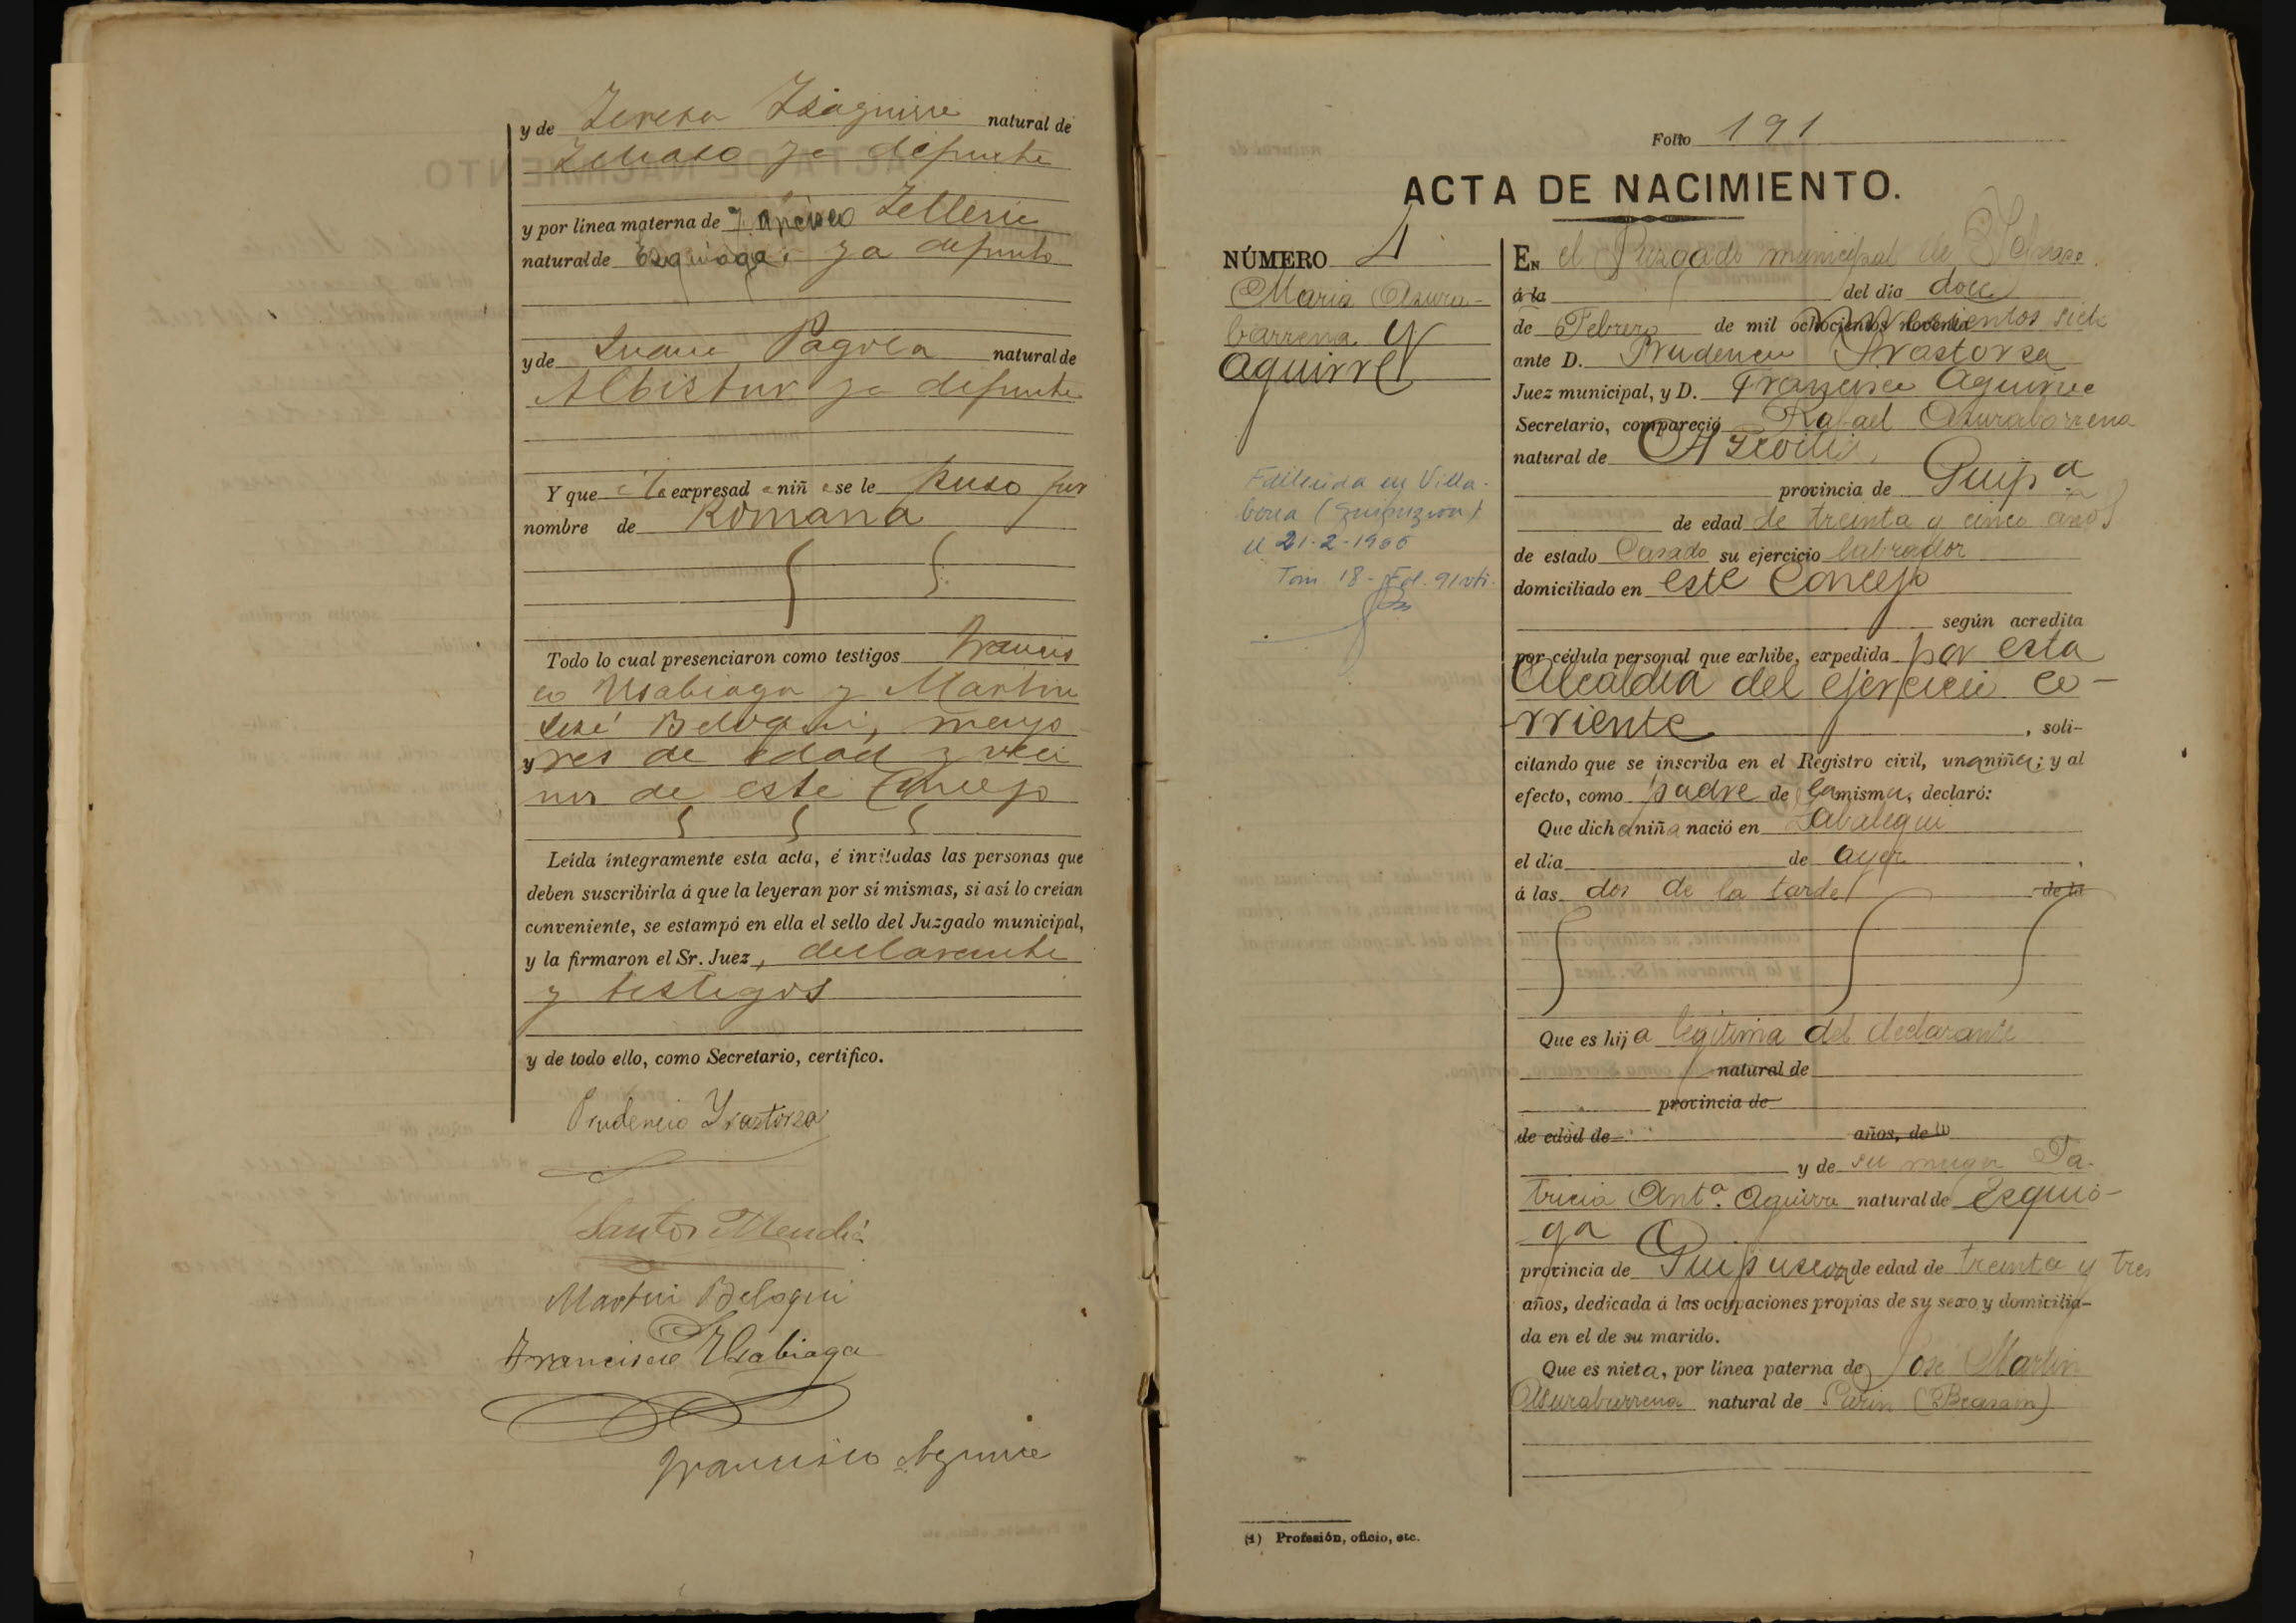 y de Teresa Ysaguirre natural de
Ichaso ya difunta
y por línea materna de Ignacio Telleria
natural de Ezquioga ya difunto
y de Juana Pagola natural de
Albistur ya difunta
Y que á la expresada niña se le puso por
nombre de Romana
Todo lo cual presenciaron como testigos Francis
co Usabiaga y Martin
José Beloqui, mayo
res de edad y veci
nos de este Concejo
Leída íntegramente esta acta, é invitadas las personas que
deben suscribirla á que la leyeran por sí mismas, si así lo creían
conveniente, se estampó en ella el sello del Juzgado municipal,
y la firmaron el Sr. Juez, declarante
y testigos
y de todo ello, como Secretario, certifico.
Prudencio Yrastorza
Santos Mendi
Martin Beloqui
Francisco Usabiaga
Francisco Aguirre
Folio 191
ACTA DE NACIMIENTO.
NÚMERO 4
Maria Asura-
barrena y
Aguirre
Fallecida en Villa-
bona (Guipuzcoa)
el 21-2-1966
Tom 18 - Fol. 91 vto.
EN el Juzgado municipal de Ichaso
á la del día doce
de Febrero de mil ochocientos noventa novecientos siete
ante D. Prudencio Yrastorza
Juez municipal, y D. Francisco Aguirre
Secretario, compareció Rafael Asurabarrena
natural de Azcoitia
provincia de Guipª
de edad de treinta y cinco años
de estado Casado su ejercicio labrador
domiciliado en este Concejo
según acredita
por cédula personal que exhibe, expedida por esta
Alcaldia del ejercicio co-
rriente, soli-
citando que se inscriba en el Registro civil, una niña; y al
efecto, como padre de la misma, declaró:
Que dicha niña nació en Zabalegui
el día de ayer,
á las dos de la tarde de la
Que es hija legitima del declarante
natural de
provincia de
de edad de años, de
y de su muger Pa-
tricia Antª. Aguirre natural de Ezquio-
ga
provincia de Guipuzcoa de edad de treinta y tres
años, dedicada á las ocupaciones propias de su sexo y domicilia-
da en el de su marido.
Que es nieta, por línea paterna de José Martin
Asurabarrena natural de (Beasain)
(1) Profesión, oficio, etc.